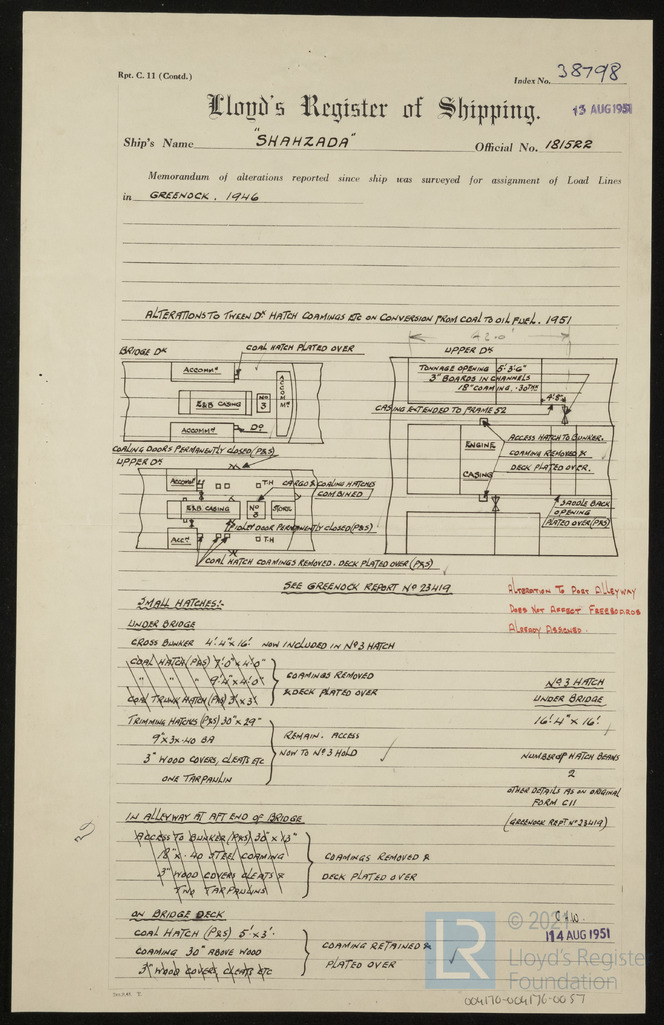 Rpt. C. 11 (Contd.)
Index No. 38798
Lloyd's Register of Shipping.
13 AUG 1951
Ship's Name "SHAHZADA" Official No. 181522
Memorandum of alterations reported since ship was surveyed for assignment of Load Lines
in GREENOCK. 1946
ALTERATIONS TO TWEEN DK HATCH COAMINGS ETC ON CONVERSION FROM COAL TO OIL FUEL. 1951
42.0'
BRIDGE DK
COAL HATCH PLATED OVER
ACCOMMN
E&B CASING
No 3
ACCOMMN
ACCOMMN
DO
COALING DOORS PERMANENTLY CLOSED (P&S)
UPPER DK
TONNAGE OPENING 5'-3'-6"
3" BOARDS IN CHANNELS
18" COAMING. ·30THK
4'8"
CASING EXTENDED TO FRAME 52
ENGINE
CASING
ACCESS HATCH TO BUNKER.
COAMING REMOVED &
DECK PLATED OVER.
SADDLE BACK
OPENING
PLATED OVER (P&S)
UPPER DK
ACCOMMN
T.H
CARGO & COALING HATCHES
COMBINED
E&B CASING
No 3
STORE
FIDLEY DOOR PERMANENTLY CLOSED (P&S)
ACCN
T.H
COAL HATCH COAMINGS REMOVED. DECK PLATED OVER (P&S)
SEE GREENOCK REPORT No 23419
ALTERATION TO PORT ALLEYWAY
DOES NOT AFFECT FREEBOARDS
ALREADY ASSIGNED
SMALL HATCHES:-
UNDER BRIDGE
CROSS BUNKER 4'.4" x 16'. NOW INCLUDED IN No 3 HATCH
COAL HATCH (P&S) 7'.0" x 4'.0"
" " " 9'.4" x 4'.0"
COAL TRUNK HATCH (P&S) 3' x 3'
COAMINGS REMOVED
& DECK PLATED OVER
No 3 HATCH
UNDER BRIDGE
16'.4" x 16'.
TRIMMING HATCHES (P&S) 30" x 29"
9" x 3 x ·40 BA
3" WOOD COVERS, CLEATS ETC
ONE TARPAULIN
REMAIN. ACCESS
NOW TO No 3 HOLD
NUMBER OF HATCH BEAMS
2
OTHER DETAILS AS ON ORIGINAL
FORM C11
(GREENOCK REPT No 23419)
IN ALLEYWAY AT AFT END OF BRIDGE
ACCESS TO BUNKER (P&S) 30" x 13"
18" x ·40 STEEL COAMING
3" WOOD COVERS CLEATS &
TWO TARPAULINS
COAMINGS REMOVED &
DECK PLATED OVER
ON BRIDGE DECK
COAL HATCH (P&S) 5' x 3'.
COAMING 30" ABOVE WOOD
3" WOOD COVERS, CLEATS ETC
COAMING RETAINED &
PLATED OVER
14 AUG 1951
© 2021
LR
Lloyd's Register
Foundation
004170-004176-0057